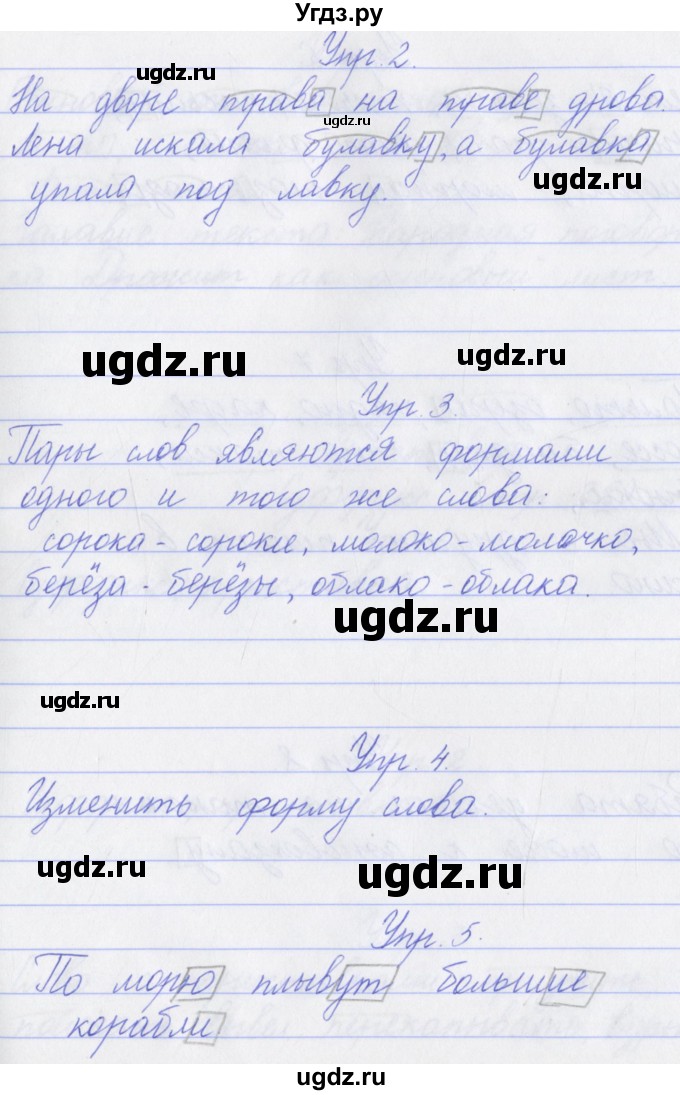 Угдз.ру
Упр. 2.
ugdz.ru
На дворе трава на траве дрова.
ugdz.ru
Лена искала булавку, а булавка
ugdz.ru
упала под лавку.
ugdz.ru
ugdz.ru
Упр. 3.
Пары слов являются формами
одного и того же слова:
сорока - сороки, молоко - молочко,
берёза - берёзы, облако - облака.
ugdz.ru
ugdz.ru
Упр. 4.
Изменить форму слова.
ugdz.ru
ugdz.ru
Упр. 5.
По морю плывут большие
корабли
ugdz.ru